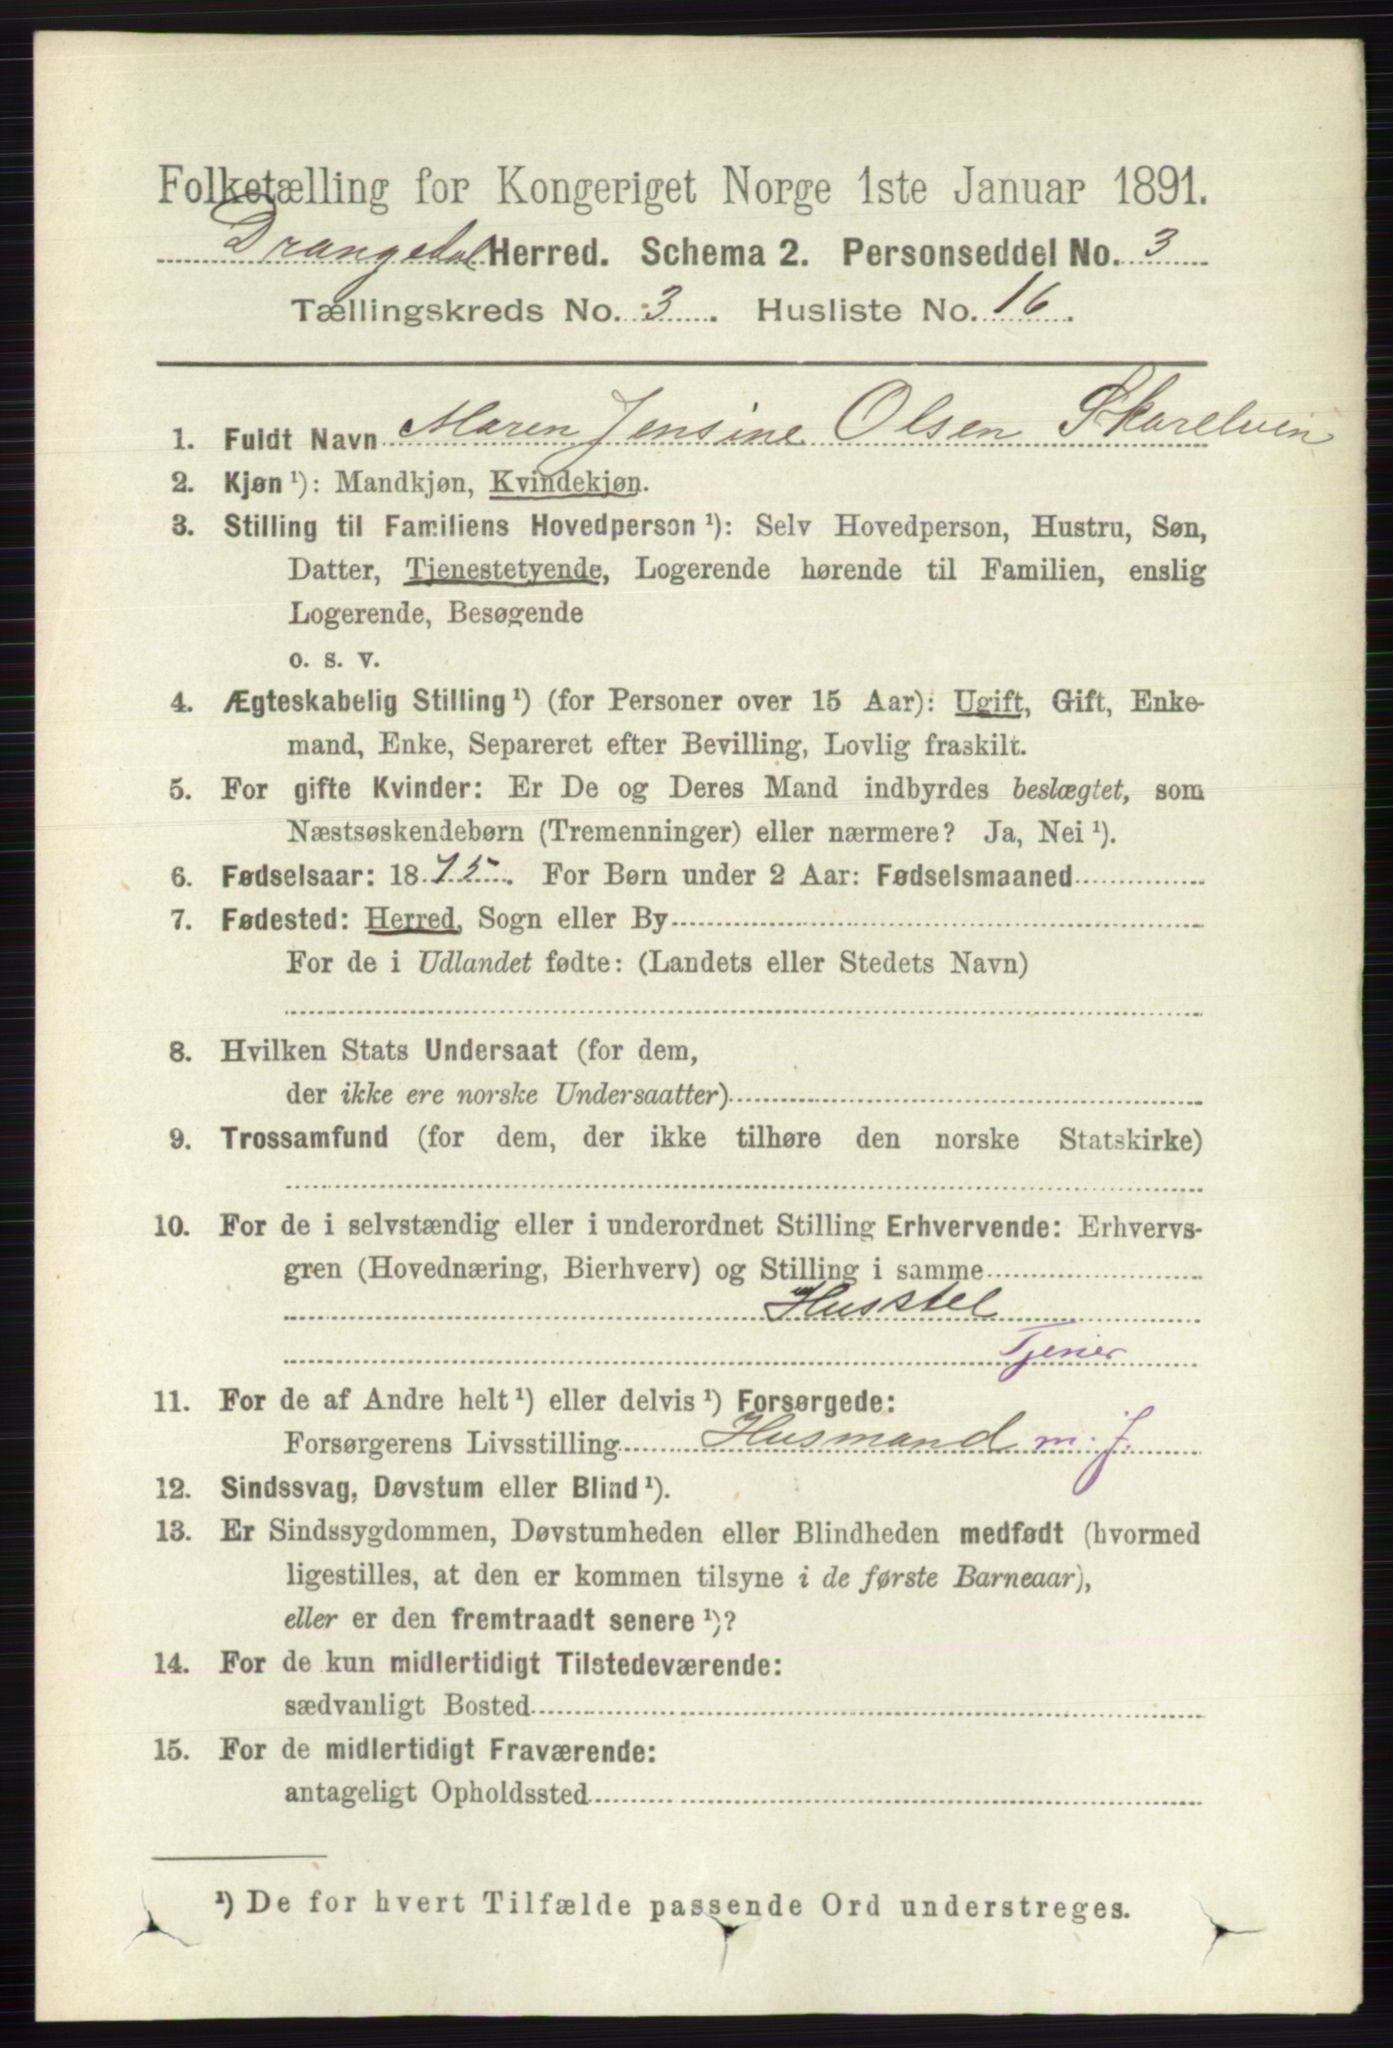 Folketælling for Kongeriget Norge 1ste Januar 1891.
Drangedal Herred. Schema 2. Personseddel No. 3
Tællingskreds No. 3. Husliste No. 16.
1. Fuldt Navn Maren Jensine Olsen Skarelvin
2. Kjøn ¹): Mandkjøn, Kvindekjøn.
3. Stilling til Familiens Hovedperson ¹): Selv Hovedperson, Hustru, Søn,
Datter, Tjenestetyende, Logerende hørende til Familien, enslig
Logerende, Besøgende
o. s. v.
4. Ægteskabelig Stilling ¹) (for Personer over 15 Aar): Ugift, Gift, Enke-
mand, Enke, Separeret efter Bevilling, Lovlig fraskilt.
5. For gifte Kvinder: Er De og Deres Mand indbyrdes beslægtet, som
Næstsøskendebørn (Tremenninger) eller nærmere? Ja, Nei ¹).
6. Fødselsaar: 1875. For Børn under 2 Aar: Fødselsmaaned
7. Fødested: Herred, Sogn eller By
For de i Udlandet fødte: (Landets eller Stedets Navn)
8. Hvilken Stats Undersaat (for dem,
der ikke ere norske Undersaatter)
9. Trossamfund (for dem, der ikke tilhøre den norske Statskirke)
10. For de i selvstændig eller i underordnet Stilling Erhvervende: Erhvervs-
gren (Hovednæring, Bierhverv) og Stilling i samme
Husstel
Tjener
11. For de af Andre helt ¹) eller delvis ¹) Forsørgede:
Forsørgerens Livsstilling Husmand m. J.
12. Sindssvag, Døvstum eller Blind ¹).
13. Er Sindssygdommen, Døvstumheden eller Blindheden medfødt (hvormed
ligestilles, at den er kommen tilsyne i de første Barneaar),
eller er den fremtraadt senere ¹)?
14. For de kun midlertidigt Tilstedeværende:
sædvanligt Bosted
15. For de midlertidigt Fraværende:
antageligt Opholdssted
¹) De for hvert Tilfælde passende Ord understreges.